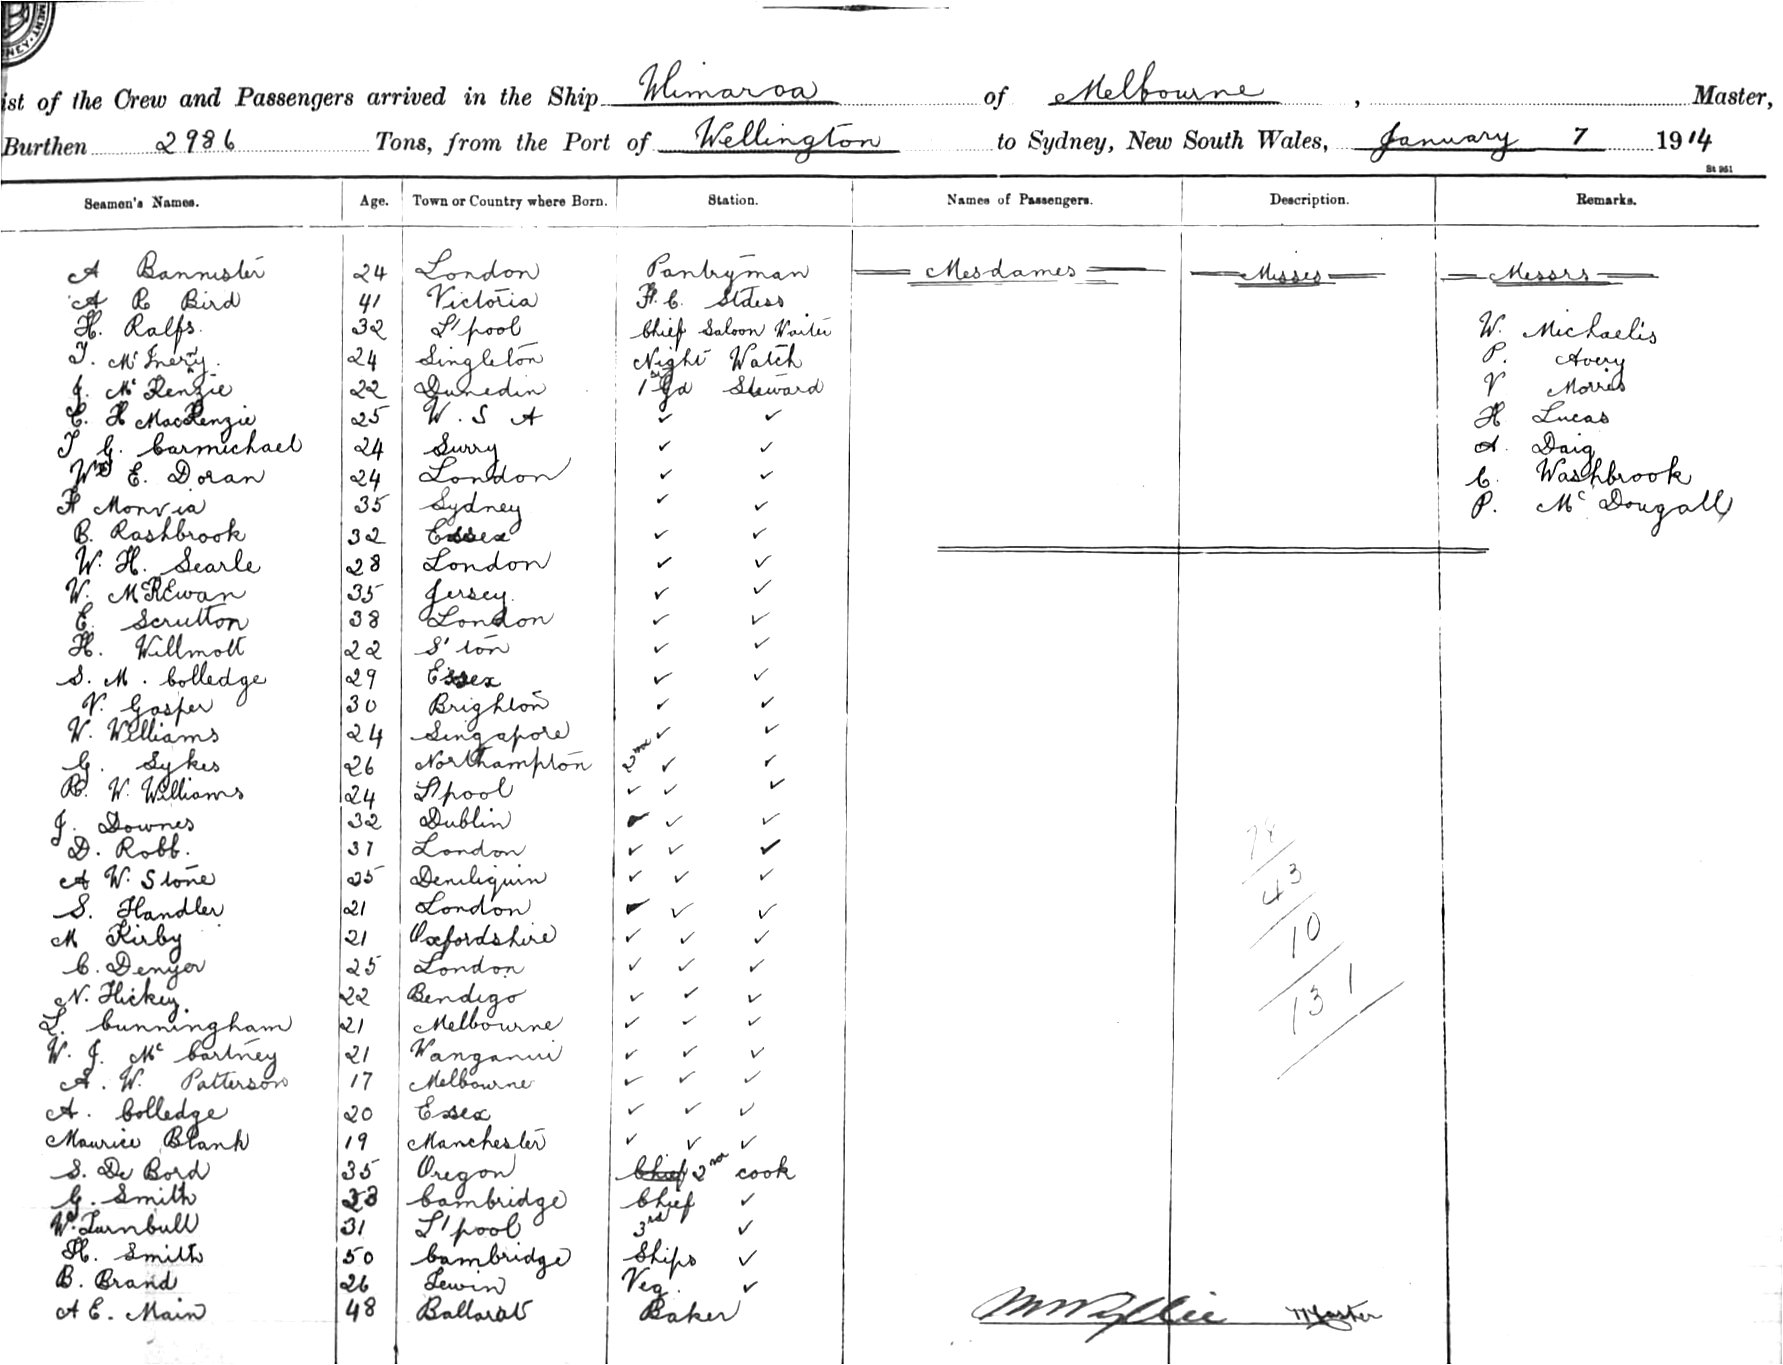 MENT
NEY
ist of the Crew and Passengers arrived in the Ship Wimaroa of Melbourne, Master,
Burthen 2986 Tons, from the Port of Wellington to Sydney, New South Wales, January 7 1914
St 951
Seamen's Names. Age. Town or Country where Born. Station. Names of Passengers. Description. Remarks.
A Bannister 24 London Pantryman Mesdames Misses Messrs
A R Bird 41 Victoria F. C. Stdess
H. Ralfs. 32 L'pool Chief Saloon Waiter W. Michaelis
T. McInerny. 24 Singleton Night Watch P. Avery
J. McKenzie 22 Dunedin 1st Gd Steward V Morris
E. H MacKenzie 25 W. S A ✓ ✓ H Lucas
T G. Carmichael 24 Surry ✓ ✓ A. Daig
Wm E. Doran 24 London ✓ ✓ C. Washbrook
F Monvia 35 Sydney ✓ ✓ P. McDougall
B. Rashbrook 32 Essex ✓ ✓
W. H. Searle 28 London ✓ ✓
W. 35 Jersey. ✓ ✓
E. Scrutton 38 London ✓ ✓
H. Willmott 22 S'ton ✓ ✓
S. M. Colledge 29 Essex ✓ ✓
V. Gasper 30 Brighton ✓ ✓
W. Williams 24 Singapore ✓ ✓
G. Sykes 26 Northampton 2nd ✓ ✓
R. W. Williams 24 L'pool ✓ ✓ ✓
J. Downes 32 Dublin ✓ ✓ ✓
D. Robb. 37 London ✓ ✓ ✓
A W. Stone 25 Deniliquin ✓ ✓ ✓
S. Handler 21 London ✓ ✓ ✓
M Kirby 21 Oxfordshire ✓ ✓ ✓
C. Denyer 25 London ✓ ✓ ✓
N. Hickey. 22 Bendigo ✓ ✓ ✓
L. Cunningham 21 Melbourne ✓ ✓ ✓
W. J. McCartney 21 Wanganui ✓ ✓ ✓
A. W. Patterson 17 Melbourne ✓ ✓ ✓
A. Colledge 20 Essex ✓ ✓ ✓
Maurice Blank 19 Manchester ✓ ✓ ✓
S. De Bord 35 Oregon Chief 2nd cook
G. Smith 33 Cambridge Chief ✓
W. Turnbull 31 L'pool 3rd ✓
H. Smith 50 Cambridge Ships ✓
B. Brand 26 Lewin Veg. ✓
A E. Main 48 Ballarat Baker
78
43
10
131
MWyllie Master